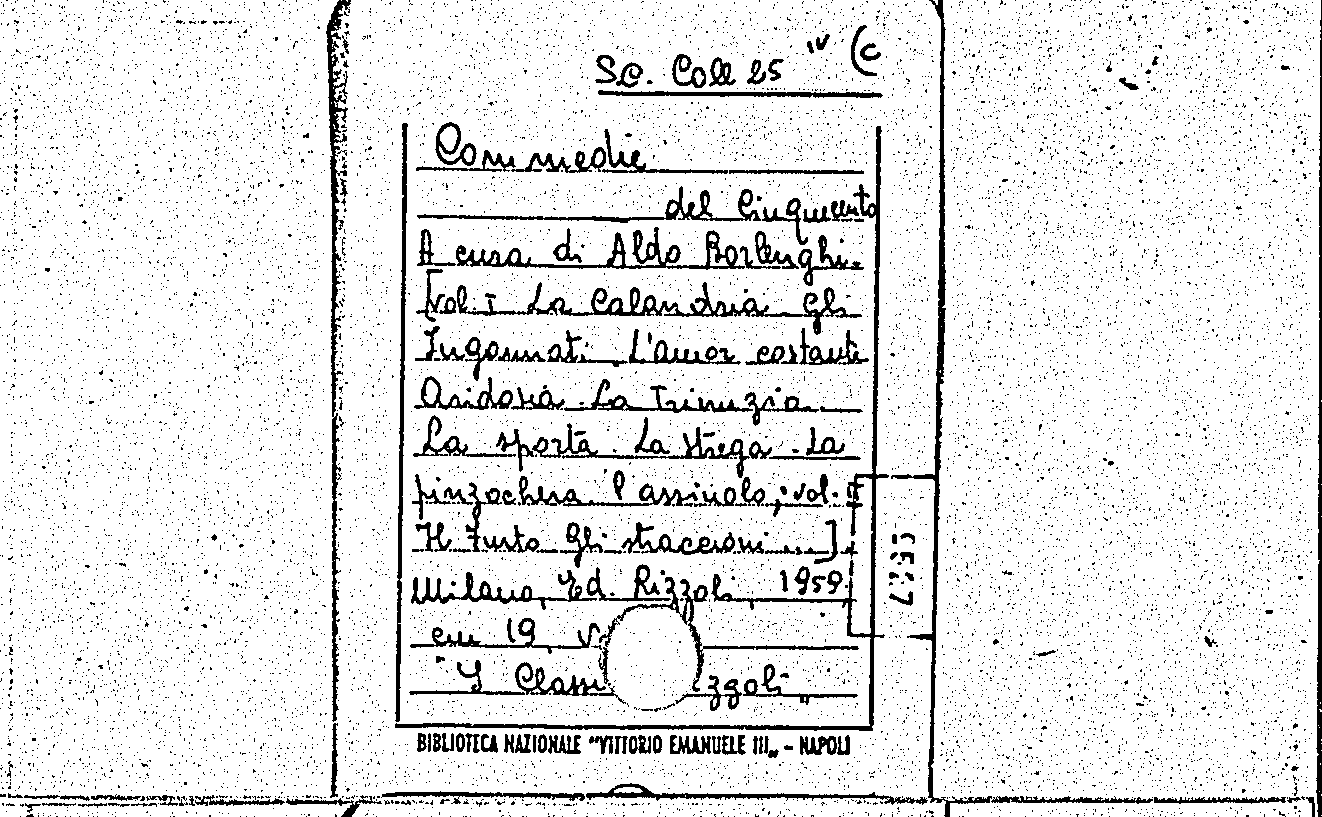 Sc. Coll 25 IV (C
Commedie
del Cinquecento
A cura di Aldo Borlenghi.
[vol. I La Calandria Gli
Ingannati. L'amor costante
Aridosia. La Trinuzia.
La sporta. La strega. La
pinzochera l'assiuolo; vol. II
Il Furto Gli straccioni ...].
Milano, Ed. Rizzoli, 1959.
cm 19, v
"I Classi zzoli"
BIBLIOTECA NAZIONALE "VITTORIO EMANUELE III„ - NAPOLI